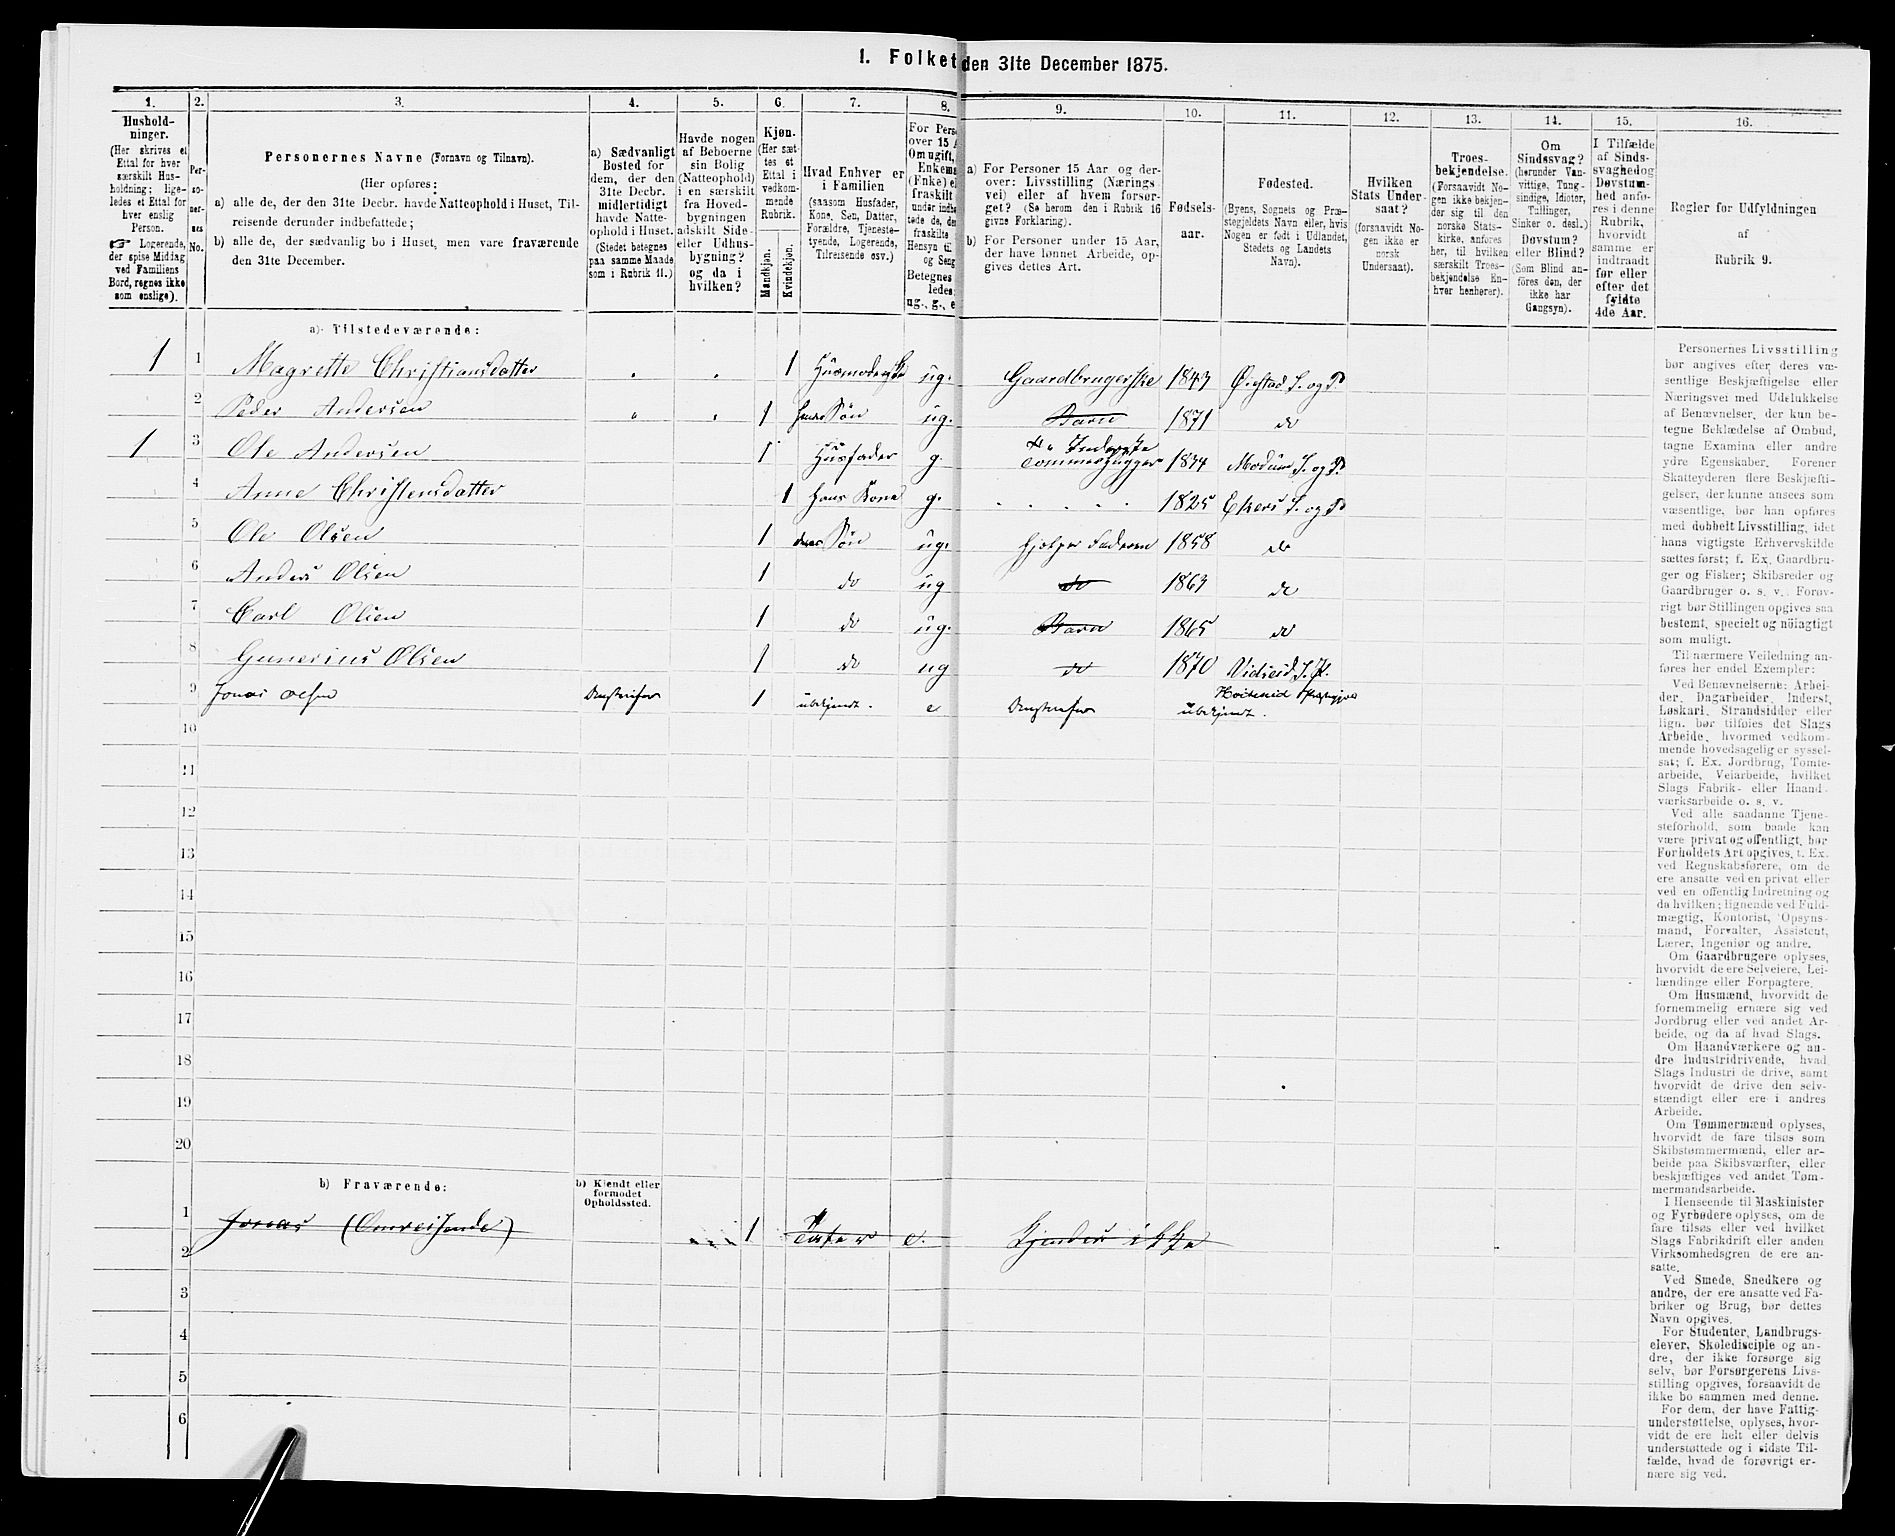 1. Folket den 31te December 1875.
1. 2. 3. 4. 5. 6. 7. 8. 9. 10. 11. 12. 13. 14. 15. 16.
Hushold-
ninger.
(Her skrives et
Ettal for hver
særskilt Hus-
holdning; lige-
ledes et Ettal for
hver enslig
Person.
☞ Logerende,
der spise Middag
ved Familiens
Bord, regnes ikke
som enslige).
Per-
so-
ner-
nes
No.
Personernes Navne (Fornavn og Tilnavn).
(Her opføres:
a) alle de, der den 31te Decbr. havde Natteophold i Huset, Til-
reisende derunder indbefattede;
b) alle de, der sædvanlig bo i Huset, men vare fraværende
den 31te December.
a) Sædvanligt
Bosted for
dem, der den
31te Decbr.
midlertidigt
havde Natte-
ophold i Huset.
(Stedet betegnes
paa samme Maade
som i Rubrik 11.)
Havde nogen
af Beboerne
sin Bolig
(Natteophold)
i en særskilt
fra Hoved-
bygningen
adskilt Side-
eller Udhus-
bygning?
og da i
hvilken?
Kjøn.
(Her sæt-
tes et
Ettal i
vedkom-
mende
Rubrik.
Mandkjøn.
Kvindekjøn.
Hvad Enhver er
i Familien
(saasom Husfader,
Kone, Søn, Datter,
Forældre, Tjeneste-
tyende, Logerende,
Tilreisende osv.)
For Pers
over 15 A
Om ugift,
Enkema
(Enke) e
fraskilt
under indb
tede de, de
fraskilte
Hensyn til
og Seng
Betegnes
ledes:
ug., g., e
a) For Personer 15 Aar og der-
over: Livsstilling (Nærings-
vei) eller af hvem forsør-
get? (Se herom den i Rubrik 16
givne Forklaring).
b) For Personer under 15 Aar,
der have lønnet Arbeide, op-
gives dettes Art.
Fødsels-
aar.
Fødested.
(Byens, Sognets og Præ-
stegjeldets Navn eller, hvis
Nogen er født i Udlandet,
Stedets og Landets
Navn).
Hvilken
Stats Under-
saat?
(forsaavidt No-
gen ikke er
norsk
Undersaat).
Troes-
bekjendelse.
(Forsaavidt No-
gen ikke bekjen-
der sig til den
norske Stats-
kirke, anføres
her, til hvilken
særskilt Troes-
bekjendelse En-
hver henhører).
Om
Sindssvag?
(herunder Van-
vittige, Tung-
sindige, Idioter,
Tullinger,
Sinker o. desl.)
Døvstum?
eller Blind?
(Som Blind an-
føres den, der
ikke har
Gangsyn).
I Tilfælde
af Sinds-
svaghed og
Døvstum-
hed anfø-
res i denne
Rubrik,
hvorvidt
samme er
indtraadt
før eller
efter det
fyldte
4de Aar.
Regler for Udfyldningen
af
Rubrik 9.
a) Tilstedeværende:
1 1 Magrette Christiansdatter 1 ug. Gaardbrugerske 1843 Øiestad S. og P
2 Peder Andersen 1 hendes Søn ug. Barn 1871 do
1 3 Ole Andersen 1 Husfader g. Tømmerhugger 1834 Modum S. og P.
4 Anne Christensdatter 1 hans Kone g. 1825 Ekers S. og P
5 Ole Olsen 1 deres Søn ug. hjelper Faderen 1858 do
6 Anders Olsen 1 do ug do 1863 do
7 Carl Olsen 1 do ug. Barn 1865 do
8 Gunerius Olsen 1 do ug do 1870
9 Jonas olsen Omstreifer 1 ubekjendt. e Omstreifer ubekjendt.
10
11
12
13
14
15
16
17
18
19
20
b) Fraværende:
b) Kjendt eller
formodet
Opholdssted.
1 Jonas (Omreisende) 1 Tater e. Kjendes ikke
2
3
4
5
6
Personernes Livsstilling
bør angives efter deres væ-
sentlige Beskjæftigelse eller
Næringsvei med Udelukkelse
af Benævnelser, der kun be-
tegne Beklædelse af Ombud,
tagne Examina eller andre
ydre Egenskaber. Forener
Skatteyderen flere Beskjæfti-
gelser, der kunne ansees som
væsentlige, bør han opføres
med dobbelt Livsstilling, idet
hans vigtigste Erhvervskilde
sættes først; f. Ex. Gaardbru-
ger og Fisker; Skibsreder og
Gaardbruger o. s. v. Forøv-
rigt bør Stillingen opgives saa
bestemt, specielt og nøiagtigt
som muligt.
Til nærmere Veiledning an-
føres her endel Exempler:
Ved Benævnelserne: Arbei-
der, Dagarbeider, Inderst,
Løskarl, Strandsidder eller
lign. bør tilføies det Slags
Arbeide, hvormed vedkom-
mende hovedsagelig er syssel-
sat; f. Ex. Jordbrug, Tomte-
arbeide, Veiarbeide, hvilket
Slags Fabrik- eller Haand-
værksarbeide o. s. v.
Ved alle saadanne Tjene-
steforhold, som baade kan
være privat og offentligt, bør
Forholdets Art opgives, f. Ex.
ved Regnskabsførere, om de
ere ansatte ved en privat eller
ved en offentlig Indretning og
da hvilken; lignende ved Fuld-
mægtig, Kontorist, Opsyns-
mand, Forvalter, Assistent,
Lærer, Ingeniør og andre.
Om Gaardbrugere oplyses,
hvorvidt de ere Selveiere, Lei-
lændinge eller Forpagtere.
Om Husmænd, hvorvidt de
fornemmelig ernære sig ved
Jordbrug eller ved andet Ar-
beide, og da af hvad Slags.
Om Haandværkere og an-
dre Industridrivende, hvad
Slags Industri de drive, samt
hvorvidt de drive den selv-
stændigt eller ere i andres
Arbeide.
Om Tømmermænd oplyses,
hvorvidt de fare tilsøs som
Skibstømmermænd, eller ar-
beide paa Skibsværfter, eller
beskjæftiges ved andet Tøm-
mermandsarbeide.
I Henseende til Maskinister
og Fyrbødere oplyses, om de
fare tilsøs eller ved hvilket
Slags Fabrikdrift eller anden
Virksomhedsgren de ere an-
satte.
Ved Smede, Snedkere og
andre, der ere ansatte ved Fa-
briker og Brug, bør dettes
Navn opgives.
For Studenter, Landbrugs-
elever, Skoledisciple og an-
dre, der ikke forsørge sig
selv, bør Forsørgerens Livs-
stilling opgives, forsaavidt de
ikke bo sammen med denne.
For dem, der have Fattig-
understøttelse, oplyses, hvor-
vidt de ere helt eller delvis
understøttede og i sidste Til-
fælde, hvad de forøvrigt er-
nære sig ved.